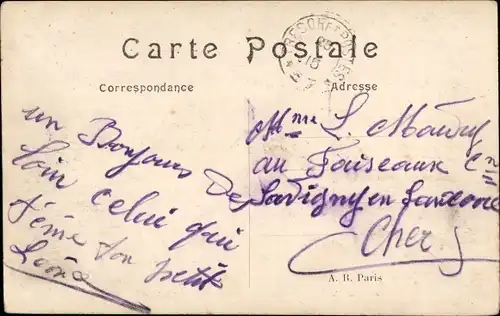 Carte Postale
Correspondance
Adresse
un Bonjour De
loin celui qui
t'aime ton petit
Léonce
Mme L. Maury
au Foiseaux Cne
Savigny en Sancerre
Cher
A. R. Paris